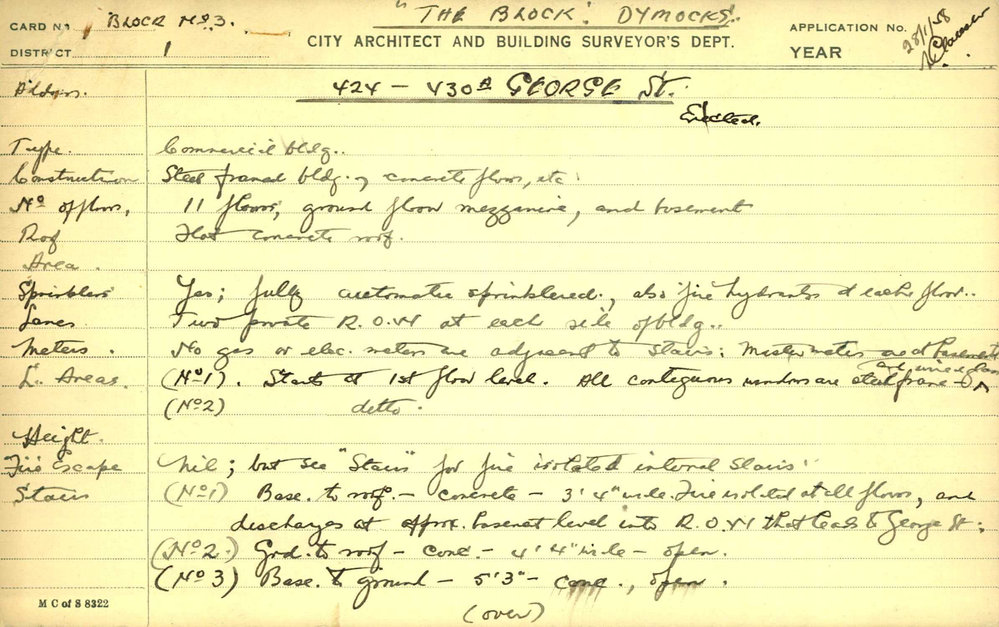 "THE BLOCK". DYMOCKS".
CARD No BLOCK No 3.
CITY ARCHITECT AND BUILDING SURVEYOR'S DEPT.
APPLICATION No.
28/1/58
DISTRICT 1
YEAR
424 – 430A GEORGE St.
Erected.
Type. Commercial bldg..
Construction Steel framed bldg. of concrete floors, etc
No of floors, 11 floors, ground floor mezzanine, and basement
Roof Flat concrete roof.
Area.
Sprinklers Yes; fully automatic sprinklered., also fire hydrants at each floor..
Lanes Two private R.O.W at each side of bldg..
Meters. No gas or elec. meters are adjacent to stairs: Master meters are at basement
L. Areas. (No1). Starts at 1st floor level. All contiguous windows are steel frame and wired glass
(No2) ditto.
Height.
Fire Escape Nil; but see "Stairs" for fire isolated internal stairs
Stairs (No1) Base. to roof. – concrete – 3'4" wide. Fire isolated at all floors, and
discharges at approx. basement level into R.O.W that leads to George St:
(No2.) Grd. to roof – conc – 4'4" wide – open.
(No3) Base. to ground – 5'3" – conc., open.
M C of S 8322
(over)